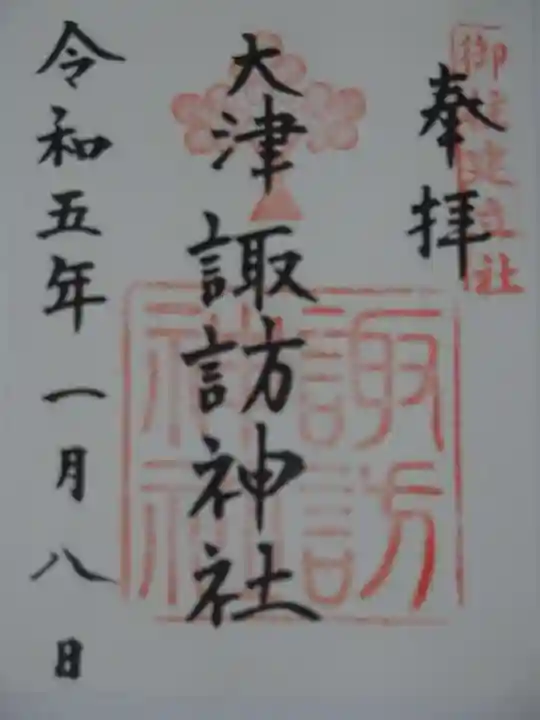 奉拝
御柱建立社
大津諏訪神社
諏訪神社
令和五年一月八日